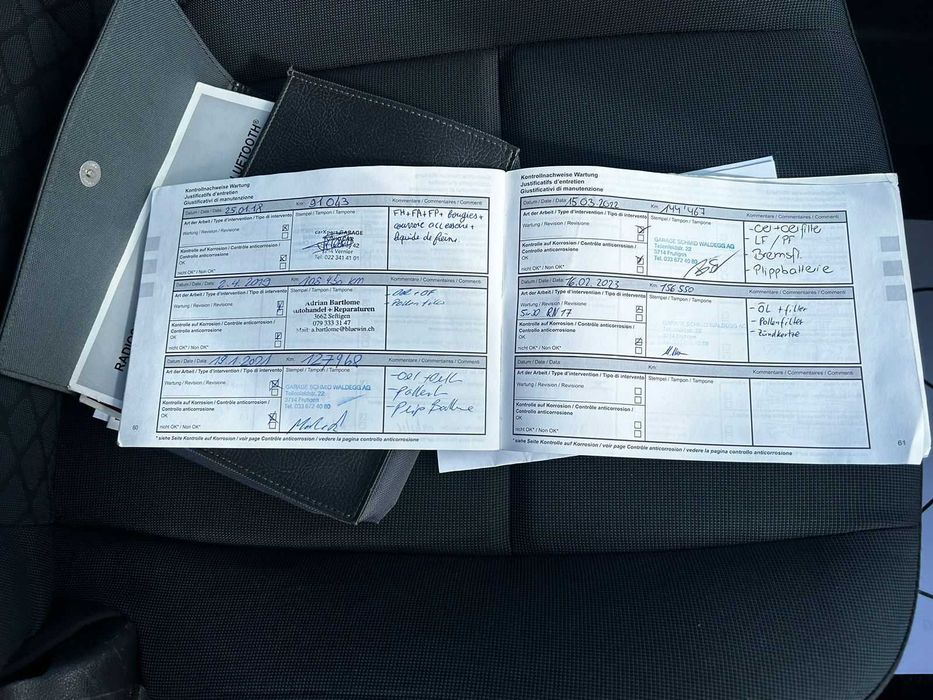 BLUETOOTH®
RADIO
Kontrollnachweise Wartung
Justificatifs d'entretien
Giustificativi di manutenzione
Datum / Date / Data: 25.01.18 Km: 91043 Kommentare / Commentaires / Commenti
Art der Arbeit / Type d'intervention / Tipo di intervento
Stempel / Tampon / Tampone
Wartung / Revision / Revisione:
Kontrolle auf Korrosion / Contrôle anticorrosion / Controllo anticorrosione:
OK
nicht OK* / Non OK*
GARAGE
Vernier
Tel. 022 341 41 01
FH+FA+FP+ Bougies+
courroie accessoire+
liquide de freins.
Datum / Date / Data: 2.4.2019 Km: 105 450 km Kommentare / Commentaires / Commenti
Art der Arbeit / Type d'intervention / Tipo di intervento
Stempel / Tampon / Tampone
Wartung / Revision / Revisione:
Kontrolle auf Korrosion / Contrôle anticorrosion / Controllo anticorrosione:
OK
nicht OK* / Non OK*
Adrian Bartlome
Autohandel + Reparaturen
3662 Seftigen
079 333 31 47
Mail: a.bartlome@bluewin.ch
- Pollenfilter
Datum / Date / Data: 19.1.2021 Km: 127968 Kommentare / Commentaires / Commenti
Art der Arbeit / Type d'intervention / Tipo di intervento
Stempel / Tampon / Tampone
Wartung / Revision / Revisione:
Kontrolle auf Korrosion / Contrôle anticorrosion / Controllo anticorrosione:
OK
nicht OK* / Non OK*
GARAGE SCHMID WALDEGG AG
3714 Frutigen
Tel. 033 672 40 80
60
*siehe Seite Kontrolle auf Korrosion / voir page Contrôle anticorrosion / vedere la pagina controllo anticorrosione
Kontrollnachweise Wartung
Justificatifs d'entretien
Giustificativi di manutenzione
Datum / Date / Data: 15.03.2022 Km: 144'467 Kommentare / Commentaires / Commenti
Art der Arbeit / Type d'intervention / Tipo di intervento
Stempel / Tampon / Tampone
Wartung / Revision / Revisione:
Kontrolle auf Korrosion / Contrôle anticorrosion / Controllo anticorrosione:
OK
nicht OK* / Non OK*
GARAGE SCHMID WALDEGG AG
3714 Frutigen
Tel. 033 672 40 80
- Oel + Oelfilter
- LF / PF
- Bremsfl.
- Plippbatterie
Datum / Date / Data: 16.02.2023 Km: 156 550 Kommentare / Commentaires / Commenti
Art der Arbeit / Type d'intervention / Tipo di intervento
Stempel / Tampon / Tampone
Wartung / Revision / Revisione:
5W30 RN17
Kontrolle auf Korrosion / Contrôle anticorrosion / Controllo anticorrosione:
OK
nicht OK* / Non OK*
GARAGE SCHMID WALDEGG AG
3714 Frutigen
Tel. 033 672 40 80
- ÖL + filter
- Pollenfilter
- Zündkerze
Datum / Date / Data: Km: Kommentare / Commentaires / Commenti
Art der Arbeit / Type d'intervention / Tipo di intervento
Stempel / Tampon / Tampone
Wartung / Revision / Revisione:
Kontrolle auf Korrosion / Contrôle anticorrosion / Controllo anticorrosione:
OK
nicht OK* / Non OK*
*siehe Seite Kontrolle auf Korrosion / voir page Contrôle anticorrosion / vedere la pagina controllo anticorrosione
61